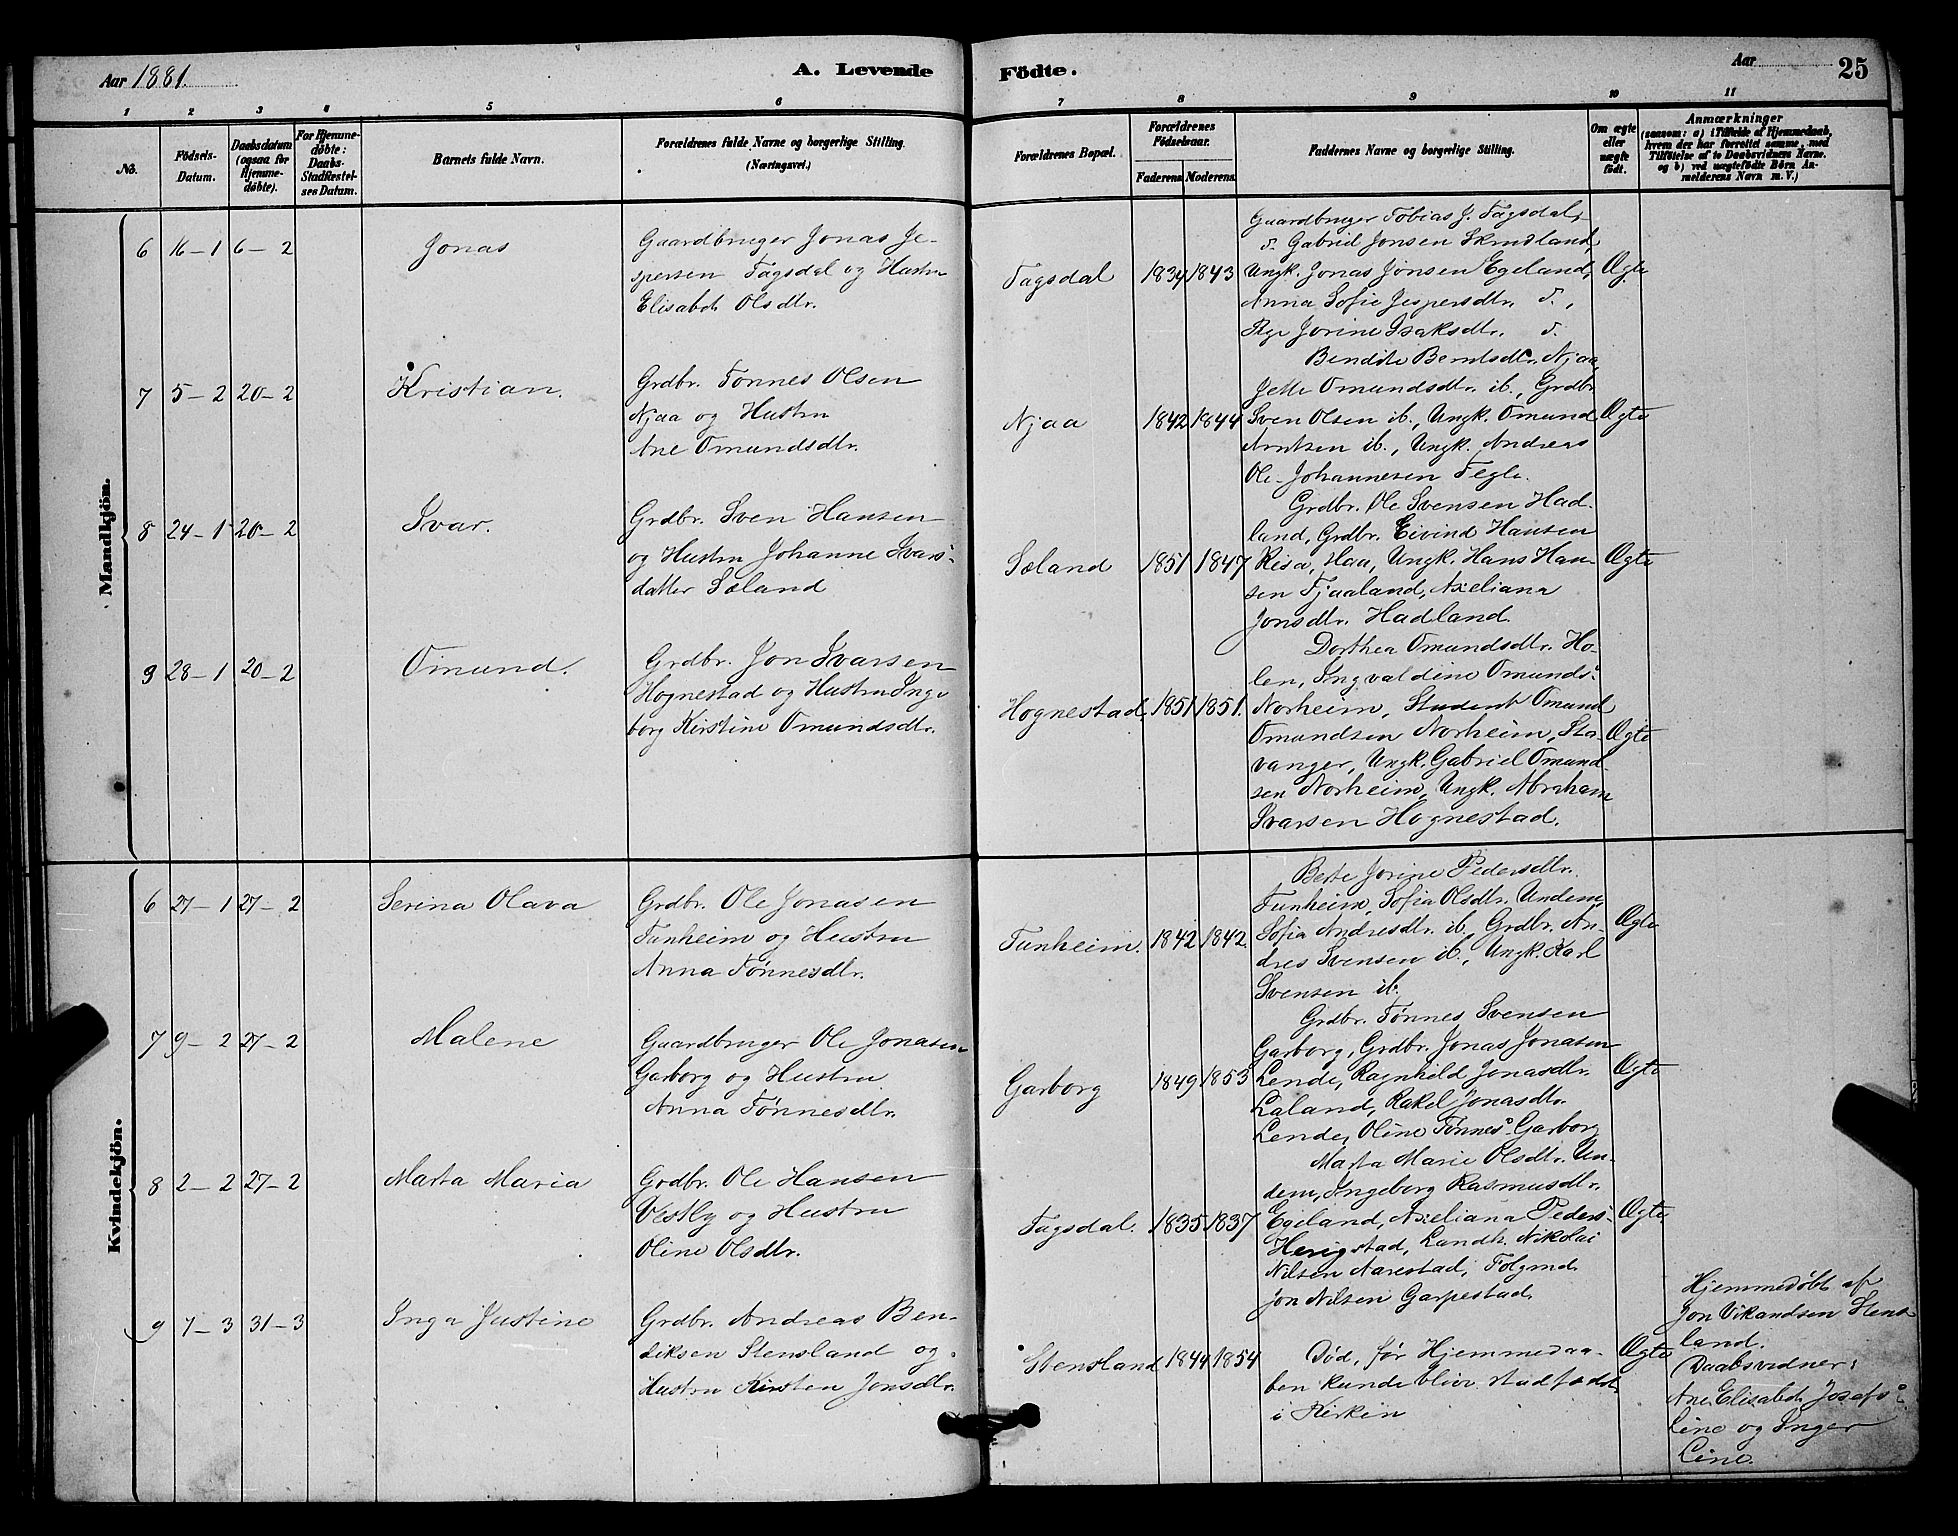 Aar 1881.
A. Levende Födte.
Aar
25
1 2 3 4 5 6 7 8 9 10 11
No.
Födsels-
Datum.
Daabsdatum
(ogsaa for
Hjemme-
døbte).
For Hjemme-
døbte:
Daabs-
Stadfæstel-
ses Datum.
Barnets fulde Navn.
Forældrenes fulde Navne og borgerlige Stilling.
(Næringsvei.)
Forældrenes Bopæl.
Forældrenes
Födselsaar.
Faderens. Moderens.
Faddernes Navne og borgerlige Stilling.
Om ægte
eller
uægte
født.
Anmærkninger
(saasom: a) i Tilfælde af Hjemmedaab,
hvem der har forrettet samme, med
Tilføielse af to Daabsvidners Navne.
og b) ved uægtefödte Börn An-
melderens Navn m. V.)
Mandkjön.
6 16-1 6-2
Jonas
Gaardbruger Jonas Je-
spersen Tagsdal og Hustru
Elisabet Olsdtr.
Tagsdal 1834 1843
Gaardbruger Tobias J. Tagsdal,
d. Gabriel Jonsen Skrudland,
Ungk. Jonas Jonsen Egeland,
Anna Sofie Jespersdtr. d.,
Pige Jorine Isaksdtr. d.
Ægte
7 5-2 20-2
Kristian.
Grdbr. Tønnes Olsen
Njaa og Hustru
Ane Omundsdtr.
Njaa 1842 1844
Bendite Berntsdtr. Njaa,
Jette Omundsdtr. ib., Grdbr.
Sven Olsen ib., Ungk. Omund
Arntsen ib., Ungk. Andreas
Ole Johannesen Tegle.
Ægte
8 24-1 20-2
Ivar.
Grdbr. Sven Hansen
og Hustru Johanne Ivars-
datter Søland
Søland 1851 1847
Grdbr. Ole Svensen Had-
land, Grdbr. Eivind Hansen
Risa, Haa, Ungk. Hans Han-
sen Fjaaland, Axeliana
Jonsdtr. Hadland.
Ægte
9 28-1 20-2
Omund.
Grdbr. Jon Ivarsen
Hognestad og Hustru Inge
borg Kirstine Omundsdtr.
Hognestad 1851 1851.
Dorthea Omundsdtr. Ho-
len, Ingvaldine Omunds.
Norheim, Student Omund
Omundsen Norheim, Sta-
vanger, Ungk. Gabriel Omund-
sen Norheim, Ungk. Abraham
Ivarsen Hognestad.
Ægte
Kvindekjön.
6 27-1 27-2
Serina Olava
Grdbr. Ole Jonasen
Tunheim og Hustru
Anna Tønnesdtr.
Tunheim. 1842 1842
Berte Jorine Pedersdtr.
Tunheim, Sofia Olsdtr. Undem,
Sofia Andresdtr. ib., Grdbr. An-
dres Svensen ib., Ungk. Karl
Svensen ib.
Ægte
7 9-2 27-2
Malene
Gaardbruger Ole Jonasen
Garborg og Hustru
Anna Tønnesdtr.
Garborg 1849 1853
Grdbr. Tønnes Svensen
Garborg, Grdbr. Jonas Jonasen
Lende, Ragnhild Jonasdtr.
Laland, Rakel Jonasdtr.
Lende, Oline Tønnes. Garborg
Ægte
8 2-2 27-2
Marta Maria
Grdbr. Ole Hansen
Vestly og Hustru
Oline Olsdtr.
Tagsdal. 1835 1837
Marta Marie Olsdtr. Un-
dem, Ingeborg Rasmusdtr.
Egeland, Axeliana Peders.
Herigstad, Landh. Nikolai
Nilsen Aarestad, Folgmd.
Jon Nilsen Garpestad.
Ægte
9 7-3 31-3
Inga Justine
Grdbr. Andreas Ben-
diksen Stensland og
Hustru Kirsten Jonsdtr.
Stensland 1844 1854
Død, før Hjemmedaa-
ben kunde blive stadfæstet
i Kirken
Ægte
Hjemmedøbt af
Jon Vikandsen Stens-
land.
Daabsvidner:
Ane Elisabet Josefs.
Line og Inger
Line.